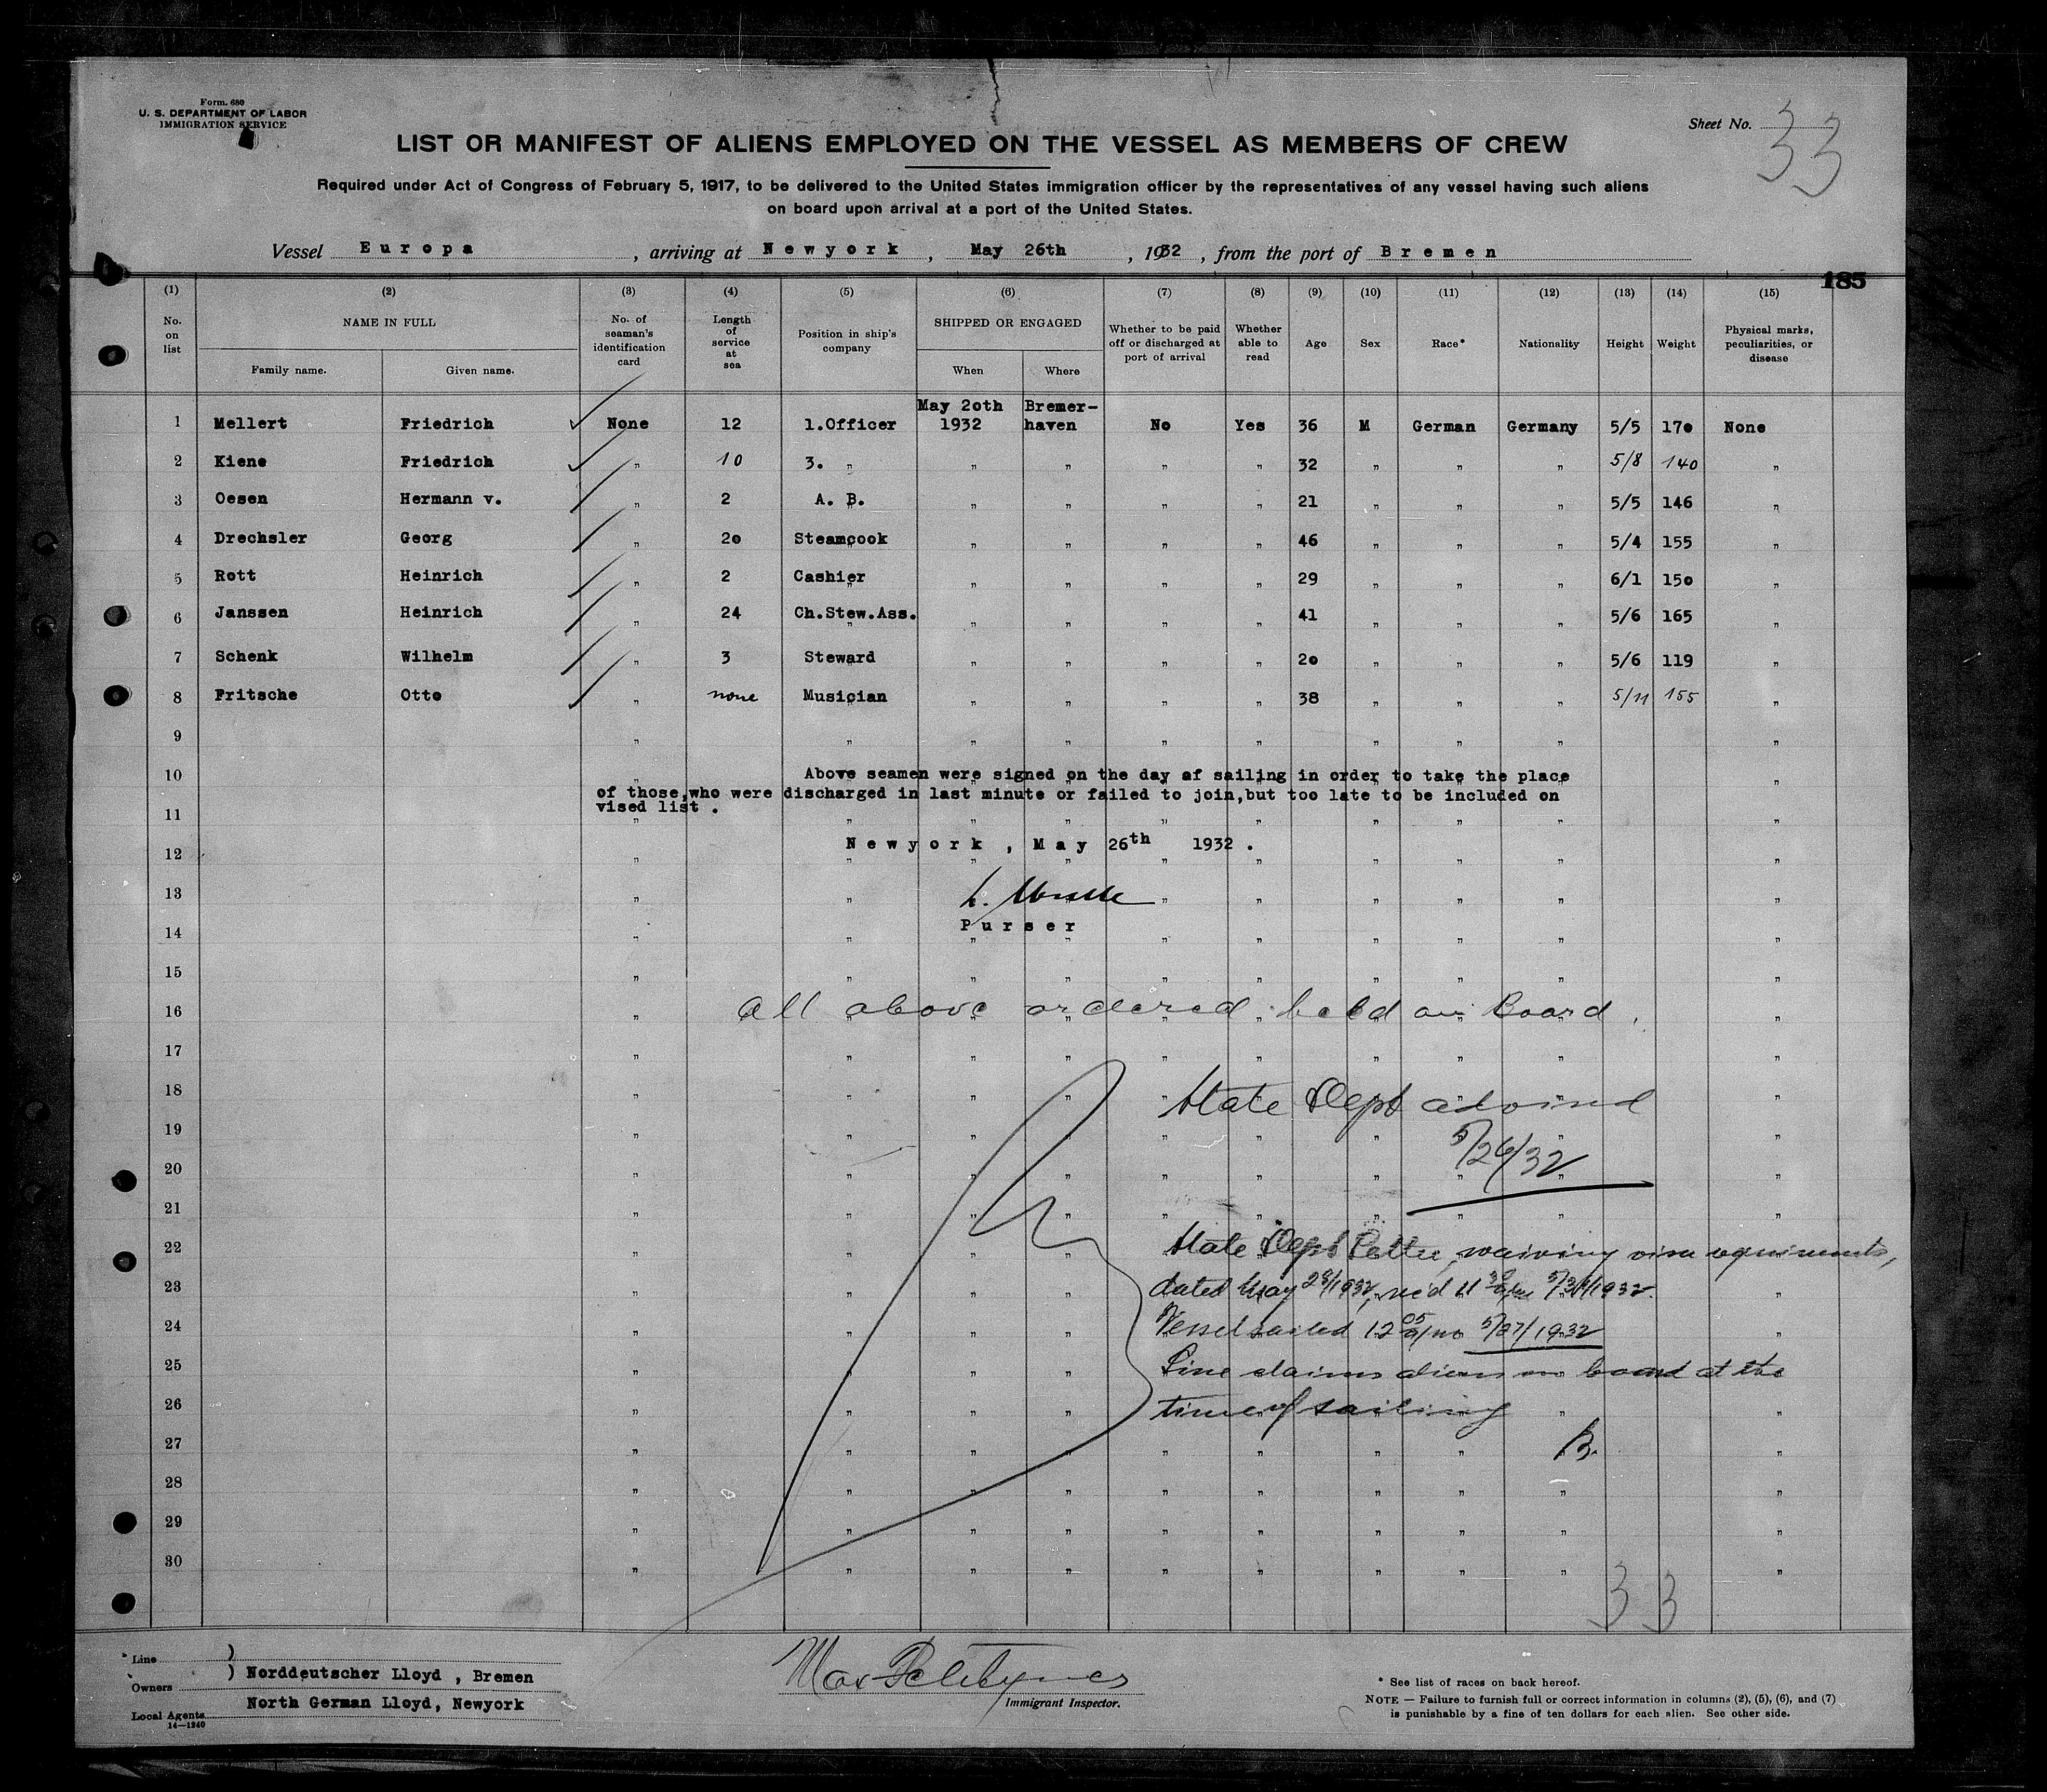 Form. 680
U. S. DEPARTMENT OF LABOR
IMMIGRATION SERVICE
Sheet No. 33
LIST OR MANIFEST OF ALIENS EMPLOYED ON THE VESSEL AS MEMBERS OF CREW
Required under Act of Congress of February 5, 1917, to be delivered to the United States immigration officer by the representatives of any vessel having such aliens
on board upon arrival at a port of the United States.
Vessel Europa, arriving at Newyork, May 26th, 1932, from the port of Bremen
185
(1) (2) (3) (4) (5) (6) (7) (8) (9) (10) (11) (12) (13) (14) (15)
No. on list NAME IN FULL No. of seaman's identification card Length of service at sea Position in ship's company SHIPPED OR ENGAGED Whether to be paid off or discharged at port of arrival Whether able to read Age Sex Race* Nationality Height Weight Physical marks, peculiarities, or disease
Family name. Given name. When Where
1 Mellert Friedrich None 12 1.Officer May 20th 1932 Bremerhaven No Yes 36 M German Germany 5/5 170 None
2 Kiene Friedrich " 10 3. " " " " " 32 " " " 5/8 140 "
3 Oesen Hermann v. " 2 A. B. " " " " 21 " " " 5/5 146 "
4 Drechsler Georg " 20 Steamcook " " " " 46 " " " 5/4 155 "
5 Rott Heinrich " 2 Cashier " " " " 29 " " " 6/1 150 "
6 Janssen Heinrich " 24 Ch.Stew.Ass. " " " " 41 " " " 5/6 165 "
7 Schenk Wilhelm " 3 Steward " " " " 20 " " " 5/6 119 "
8 Fritsche Otto " none Musician " " " " 38 " " " 5/11 155 "
9
10 Above seamen were signed on the day of sailing in order to take the place
of those,who were discharged in last minute or failed to join,but too late to be included on
11 vised list .
12 Newyork, May 26th 1932.
13
14 Purser
15
16 All above ordered held on Board.
17
18 State Dept advised
19
20 5/26/32
21
22 State Dept Letter, waiving visa requirements,
23 dated May 28/1932, rec'd 11 30 am 5/31/1932.
24 Vessel sailed 12 05 a/m 5/27/1932
25 Line claims aliens on board at the
26 time of sailing
27 B.
28
29
30
33
Line )
Owners ) Norddeutscher Lloyd , Bremen
Local Agents North German Lloyd, Newyork
14—1240
Immigrant Inspector.
* See list of races on back hereof.
NOTE — Failure to furnish full or correct information in columns (2), (5), (6), and (7)
is punishable by a fine of ten dollars for each alien. See other side.